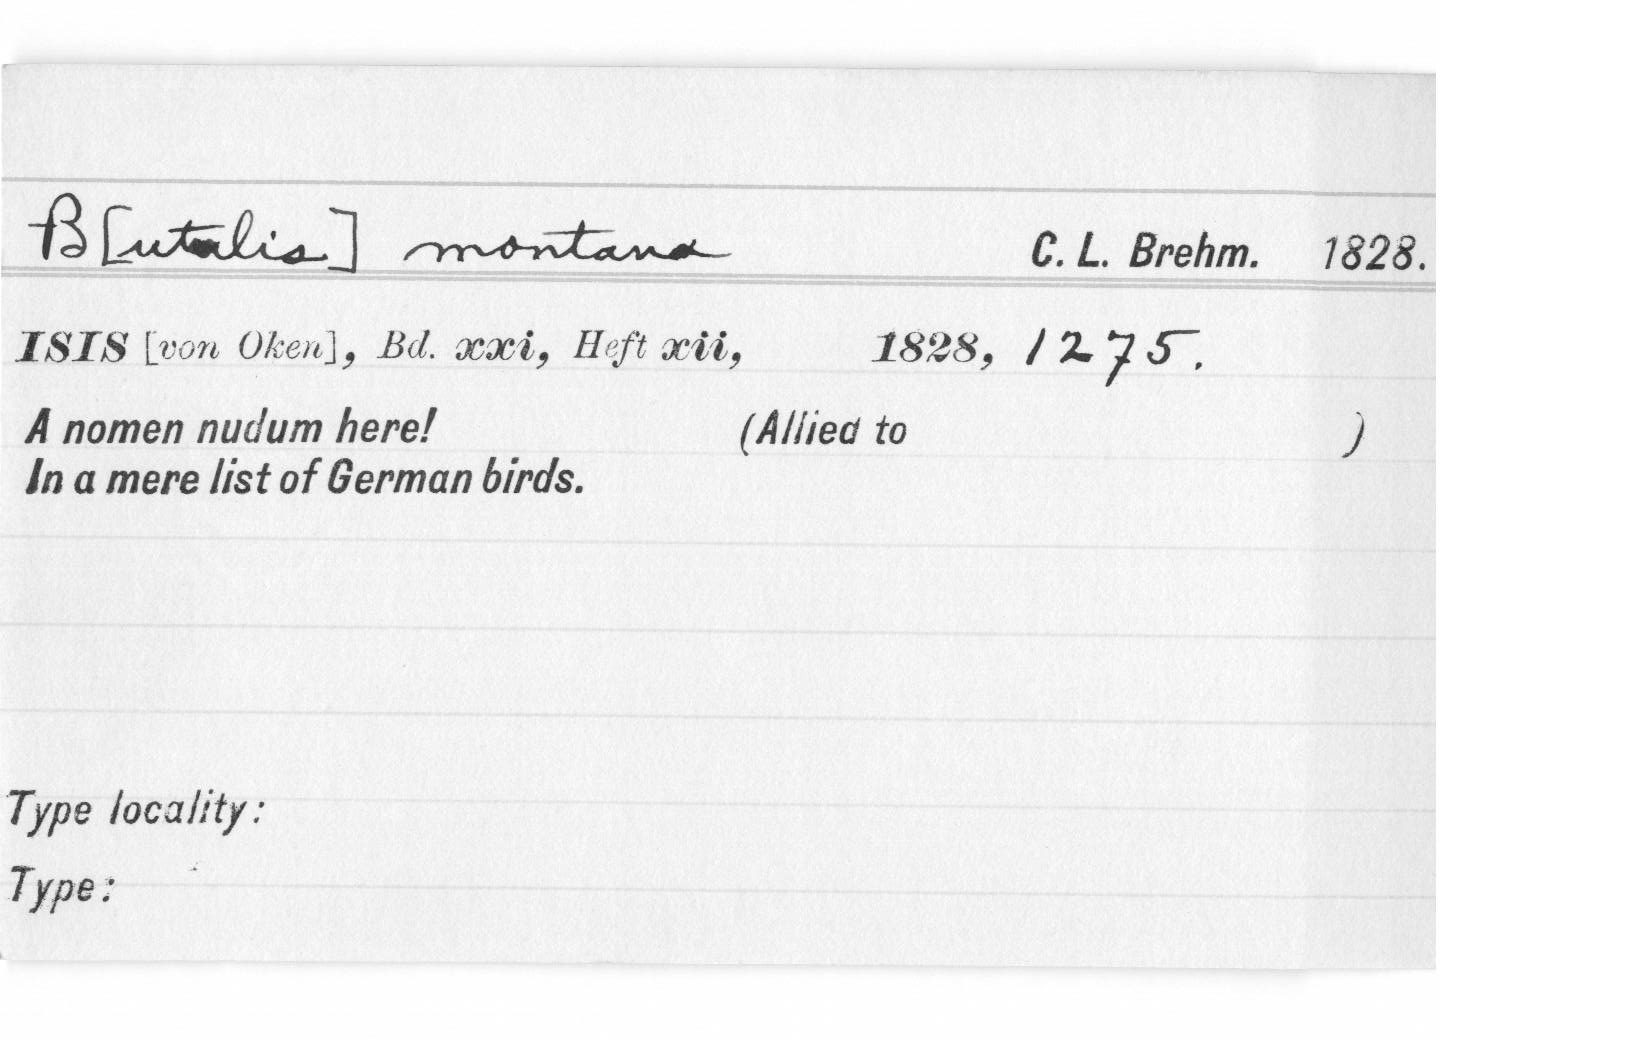 B[utalis] montana C. L. Brehm. 1828.
ISIS [von Oken], Bd. xxi, Heft xii, 1828, 1275.
A nomen nudum here! (Allied to )
In a mere list of German birds.
Type locality:
Type: